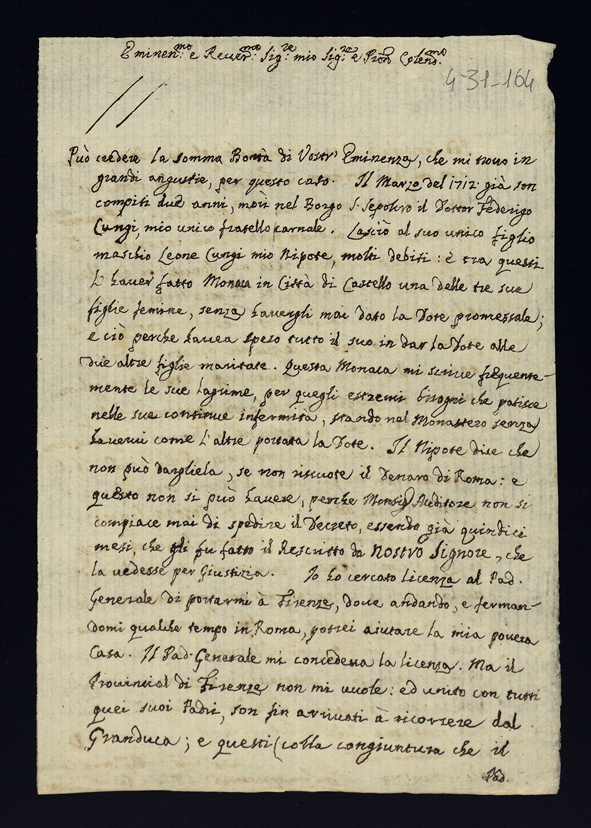 Eminen.mo e Rever.mo Sig.re mio Sig.re e Pron. Colend.mo
4-31-164
Può credere la somma Bontà di Vostr' Eminenza, che mi trovo in
grandi angustie, per questo caso. Il Marzo del 1712 già son
compiti due anni, morì nel Borgo S. Sepolcro il Dottor Federigo
Cungi, mio unico fratello carnale. Lasciò al suo unico figlio
maschio Leone Cungi mio Nipote, molti debiti: è tra questi
l'haver fatto Monaca in Città di Castello una delle tre sue
figlie femine, senza havergli mai dato la Dote promessale;
e ciò perche havea speso tutto il suo in dar la Dote alle
due altre figlie maritate. Questa Monaca mi scrive frequente-
mente le sue lagrime, per quegli estremi bisogni che patisce
nelle sue continue infermità, stando nel Monastero senza
havervi come l'altre portata la Dote. Il Nipote dice che
non può dargliela, se non riscuote il Denaro di Roma: e
questo non si può havere, perche Monsig. Auditore non si
compiace mai di spedire il Decreto, essendo già quindici
mesi, che gli fu fatto il Rescritto da Nostro Signore, che
la vedesse per Giustizia. Io ho cercato licenza al Pad.
Generale di portarmi à Firenze, dove andando, e ferman-
domi qualche tempo in Roma, potrei aiutare la mia povera
Casa. Il Pad. Generale mi concedeva la licenza. Ma il
Provincial di Firenze non mi vuole: ed unito con tutti
quei suoi Padri, son fin arrivati à ricorrere dal
Granduca; e questi (colla congiuntura che il
Pad.